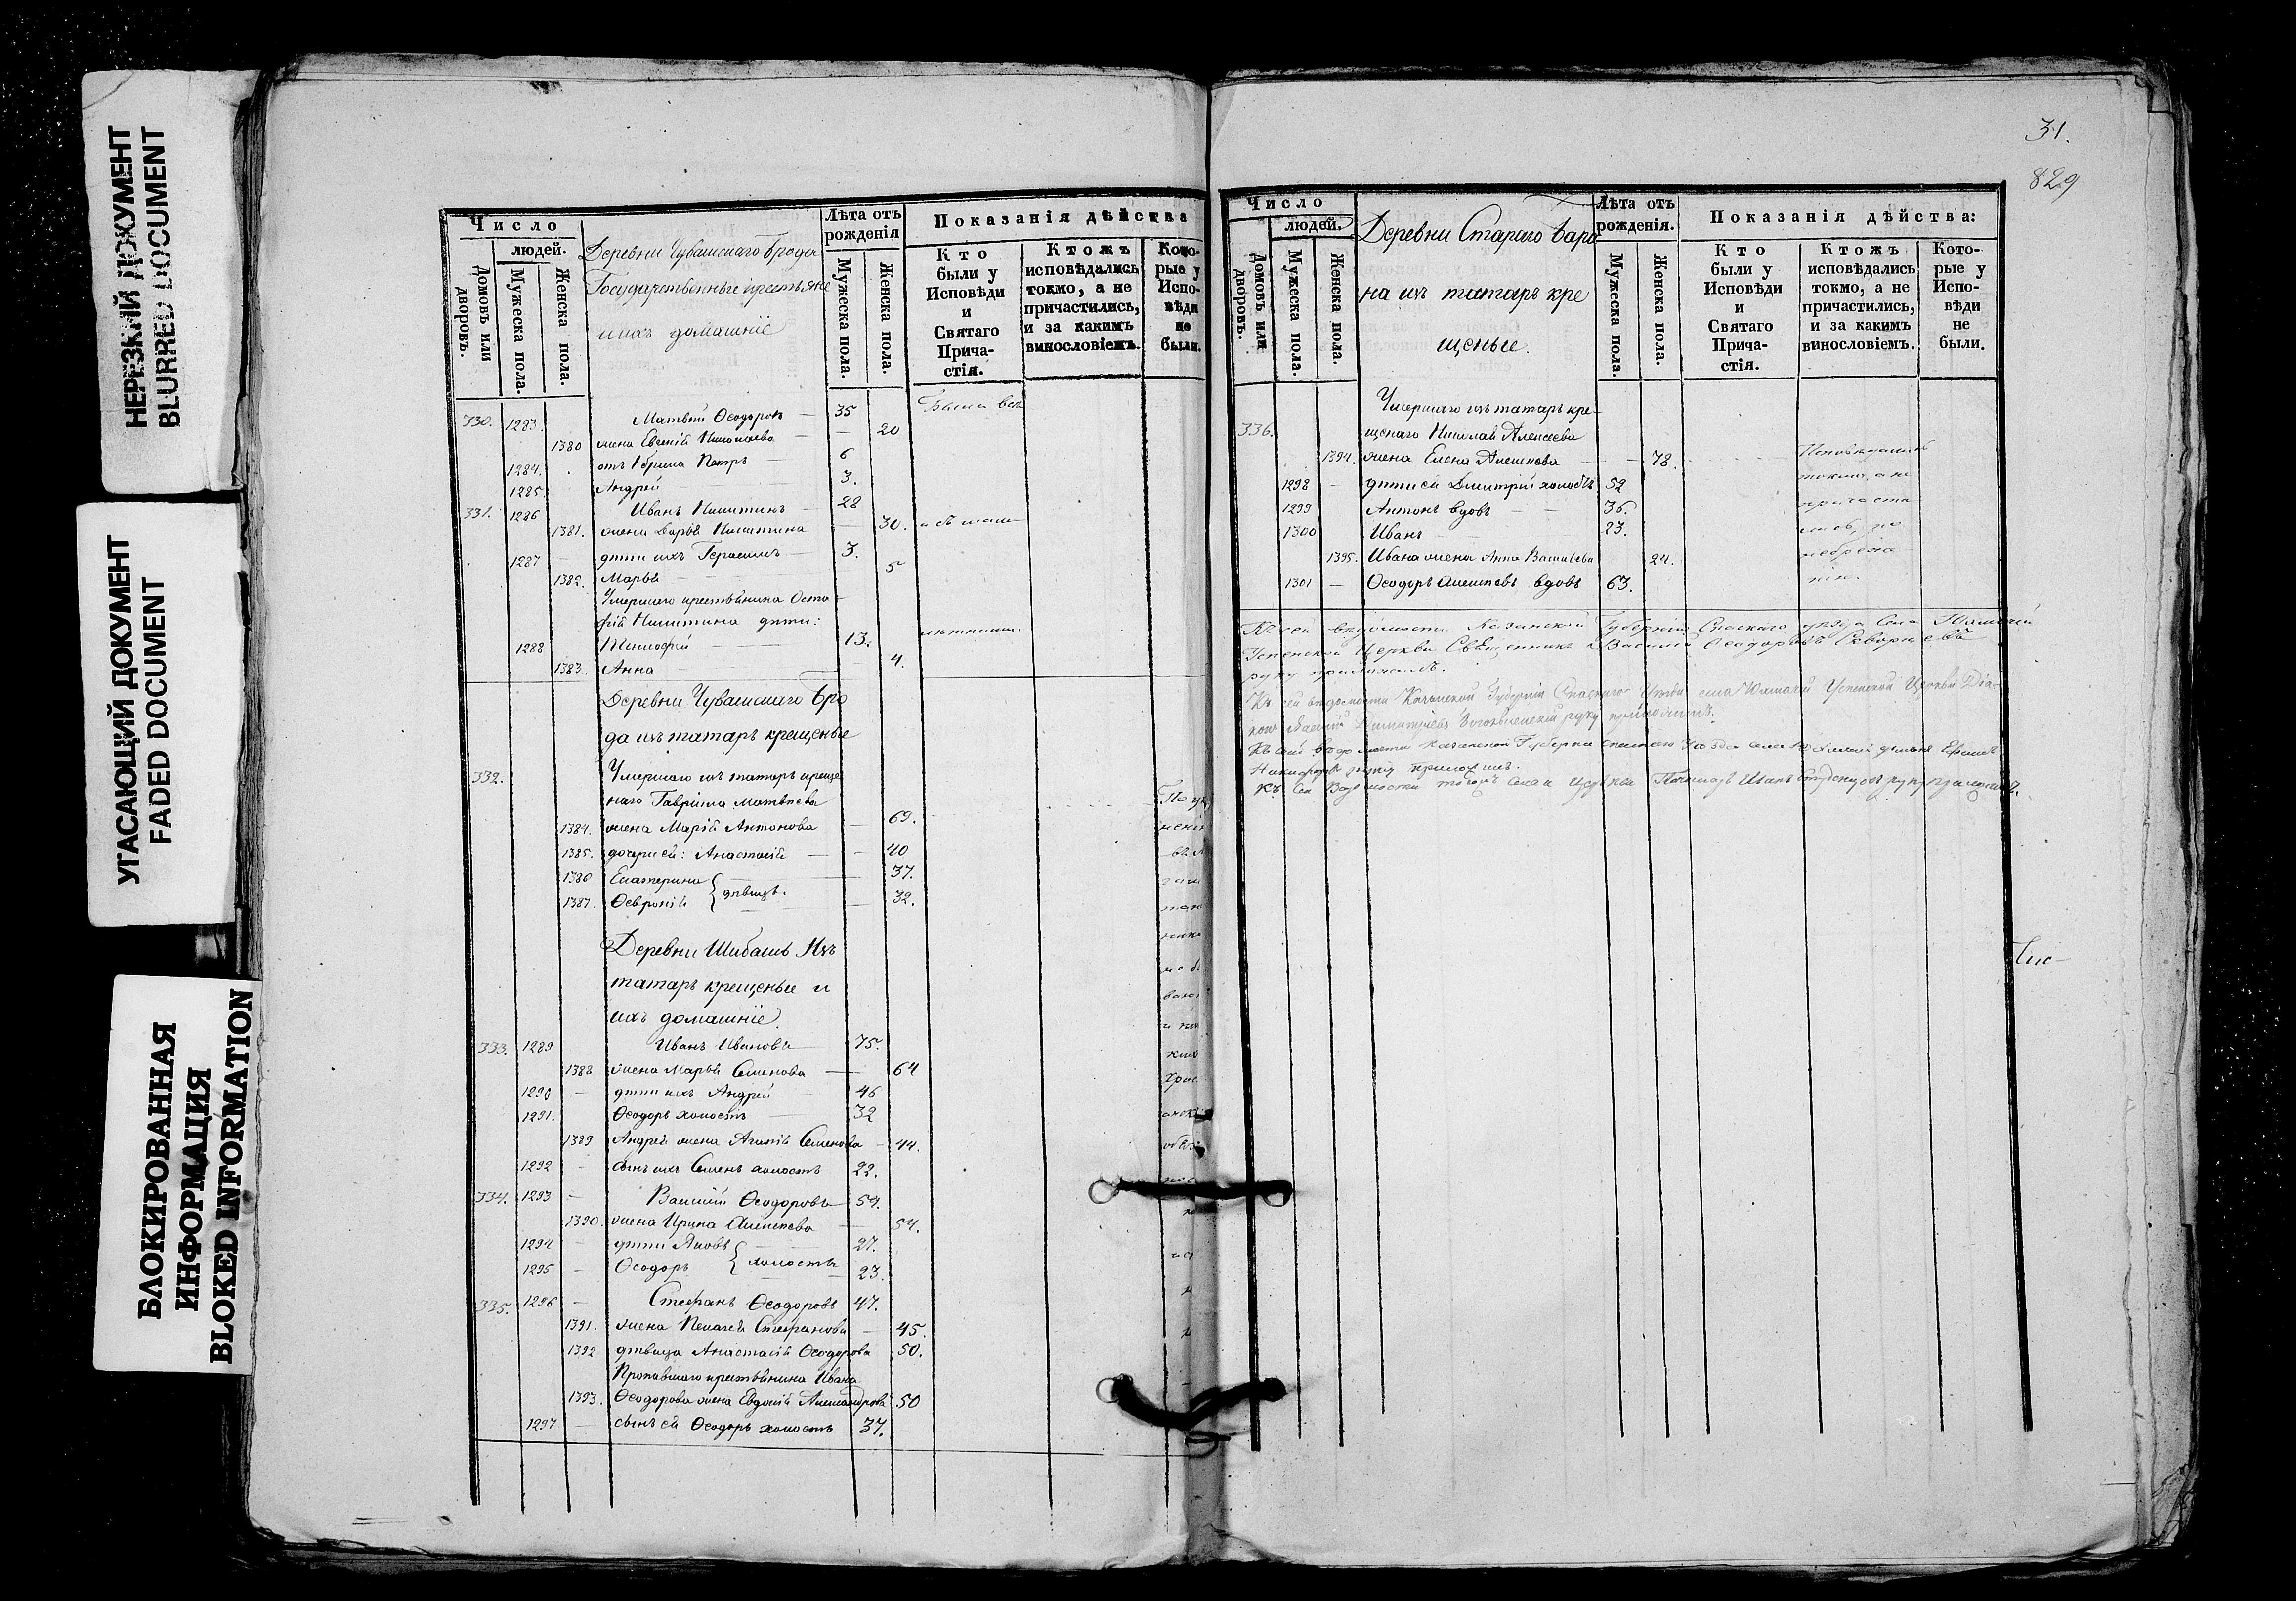 НЕРЕЗКИЙ ДОКУМЕНТ
BLURRED DOCUMENT
УГАСАЮЩИЙ ДОКУМЕНТ
FADED DOCUMENT
БЛОКИРОВАННАЯ
ИНФОРМАЦИЯ
BLOKED INFORMATION
Число
людей.
Домовъ или дворовъ.
Мужеска пола.
Женска пола.
Деревни Чувашскаго Брода
Государственные крестьяне
и ихъ домашніе
Лѣта отъ рожденія
Мужеска пола.
Женска пола.
Показанія дѣйства
Кто были у Исповѣди и Святаго Прича- стія.
Ктожъ исповѣдались токмо, а не причастились, и за какимъ винословіемъ.
Кото- рые у Испо- вѣди не были.
330. 1283. Матвѣй Ѳеодоровъ 35 Были
1380 жена 20
1284. Петръ 6
1285. Андрей 3.
331. 1286 Иванъ Никитинъ 28
1381. жена Дарья Никитина 30.
1287 дѣти ихъ Герасимъ 3.
1382. Марья 5
Умершаго крестьянина Оста
фія Никитина дѣти:
1288 Тимофей 13.
1383. Анна 4.
Деревни Чувашскаго Бро
да изъ татаръ крещеные
332. Умершаго изъ татаръ креще
наго Гавріила Матвѣева
1384. жена Марія Антонова 69.
1385. дочери ея: Анастасія 40
1386 Екатерина 37.
1387. Ѳевронія дѣвицы. 32.
Деревни Шибашъ Изъ
татаръ крещеные и
ихъ домашніе.
333. 1289 Иванъ Ивановъ 75.
1388 жена Марья Семенова 64
1290 дѣти ихъ Андрей 46
1291. Ѳеодоръ холостъ 32
1389 Андрея жена Агапія Семенова 44.
1292 сынъ ихъ Семенъ холостъ 22.
334. 1293 Василій Ѳеодоровъ 59.
1390. жена Ирина Алексѣева 54.
1294 дѣти Яковъ 27.
1295 Ѳеодоръ холосты 23.
335. 1296 Стефанъ Ѳеодоровъ 47.
1391. жена Пелагея Стефанова 45.
1392 дѣвица Анастасія Ѳеодорова 50.
Пропавшаго крестьянина Ивана
1393. Ѳеодорова жена Евдокія Александрова 50
1297 сынъ ея Ѳеодоръ холостъ 37.
31.
829
Число
людей.
Домовъ или дворовъ.
Мужеска пола.
Женска пола.
Деревни Стараго Бара
на изъ татаръ кре
щеные.
Лѣта отъ рожденія.
Мужеска пола.
Женска пола.
Показанія дѣйства:
Кто были у Исповѣди и Святаго Прича- стія.
Ктожъ исповѣдались токмо, а не причастились, и за какимъ винословіемъ.
Кото- рые у Испо- вѣди не были.
Умершаго изъ татаръ кре-
336. щенаго Николая Алексеева
1394. жена Елена Алексѣева 78. Исповѣдались
1298 дѣти ея Дмитрій холостъ 52 токмо, а не
1299 Антонъ вдовъ 36. причасти
1300 Иванъ 23. лись, по
1395. Ивана жена Анна Васильева 24. небреже
1301 Ѳеодоръ Алексѣевъ вдовъ 63. нію.
Къ сей вѣдомости Казанской Губерніи Спаскаго уѣзда Села Юхмачей
Успенской Церкви Священникъ Василій Ѳеодоровъ Скворцевъ
руку приложилъ.
Къ сей вѣдомости Казанской Губерніи Спаскаго Уѣзда села Юхмачей Успенской Церкви Діа-
конъ Димитріевъ Богоявленскій руку приложилъ.
Къ сей вѣдомости Казанской Губерніи Спаскаго Уѣзда села Юхмачей Ефимъ
Никифоровъ руку приложилъ.
Къ сей Вѣдомости тогожъ Села и Церкви Пономарь Иванъ Студенцовъ руку приложилъ.
Чис-